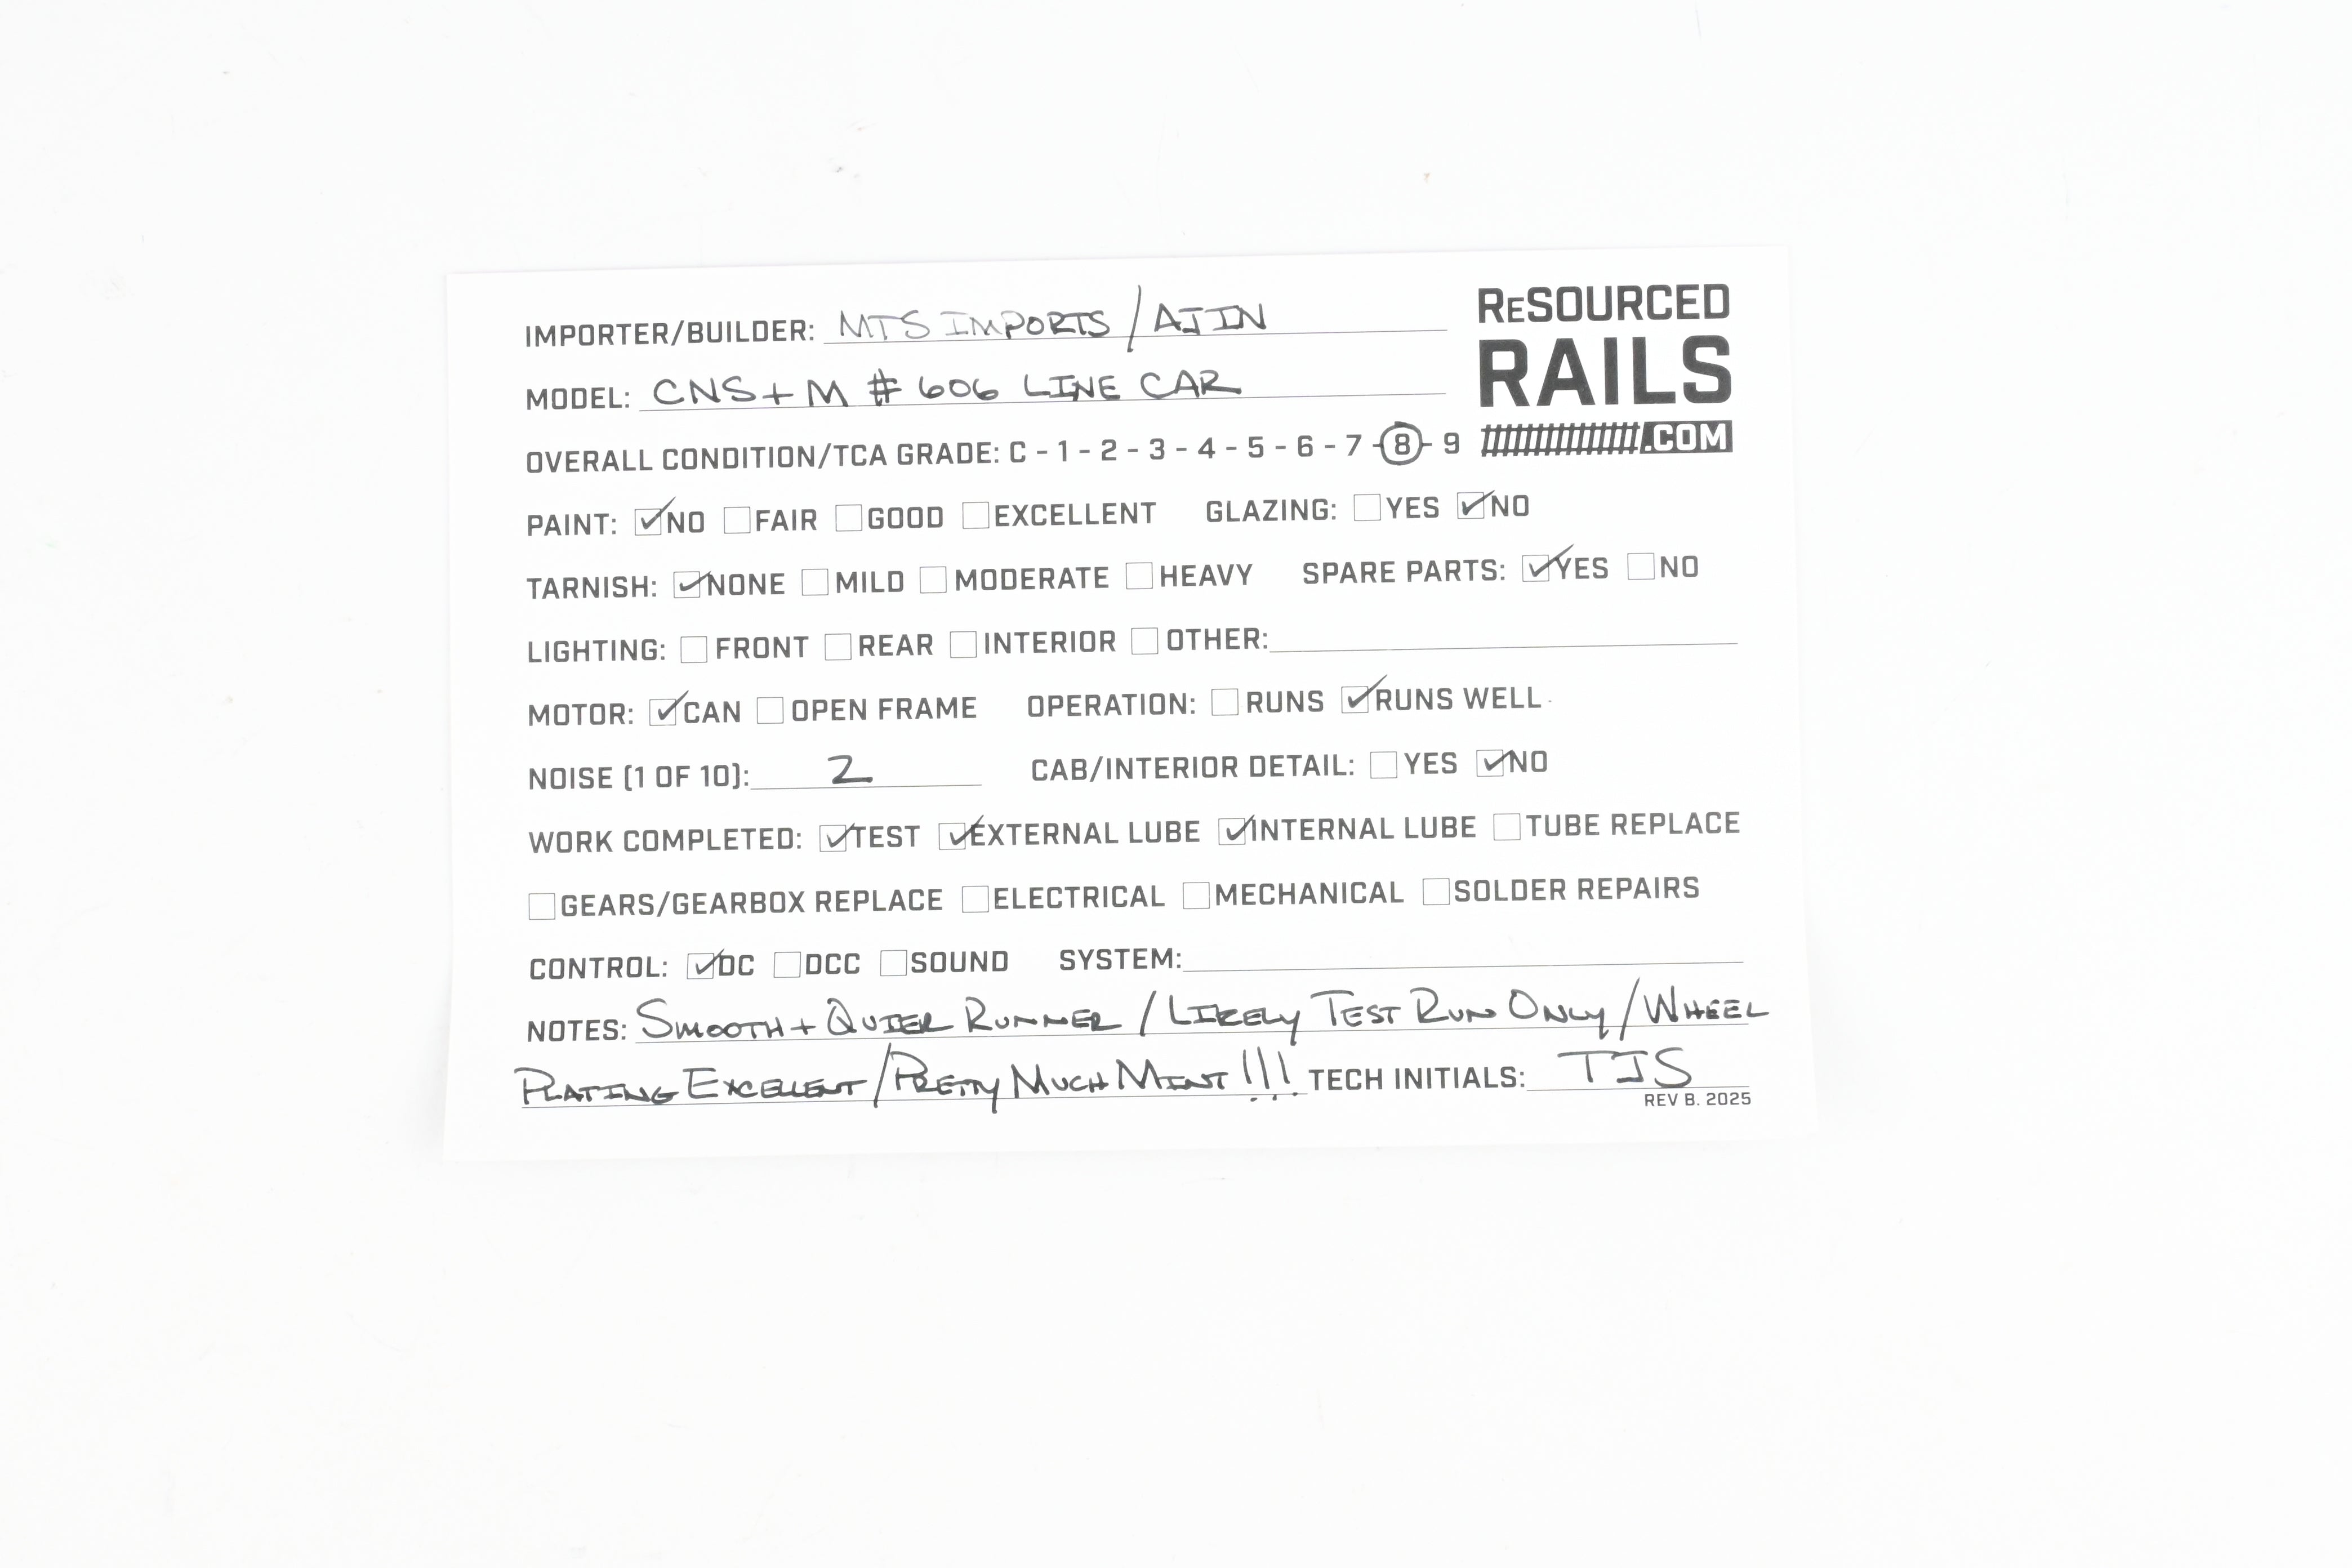 IMPORTER/BUILDER: MTS IMPORTS / AJIN
RESOURCED
RAILS
.COM
MODEL: CNS+M # 606 LINE CAR
OVERALL CONDITION/TCA GRADE: C - 1 - 2 - 3 - 4 - 5 - 6 - 7 - 8 - 9
PAINT: ✓ NO ☐ FAIR ☐ GOOD ☐ EXCELLENT GLAZING: ☐ YES ✓ NO
TARNISH: ✓ NONE ☐ MILD ☐ MODERATE ☐ HEAVY SPARE PARTS: ✓ YES ☐ NO
LIGHTING: ☐ FRONT ☐ REAR ☐ INTERIOR ☐ OTHER:
MOTOR: ✓ CAN ☐ OPEN FRAME OPERATION: ☐ RUNS ✓ RUNS WELL
NOISE (1 OF 10): 2 CAB/INTERIOR DETAIL: ☐ YES ✓ NO
WORK COMPLETED: ✓ TEST ✓ EXTERNAL LUBE ✓ INTERNAL LUBE ☐ TUBE REPLACE
☐ GEARS/GEARBOX REPLACE ☐ ELECTRICAL ☐ MECHANICAL ☐ SOLDER REPAIRS
CONTROL: ✓ DC ☐ DCC ☐ SOUND SYSTEM:
NOTES: SMOOTH + QUIET RUNNER / LIKELY TEST RUN ONLY / WHEEL
PLATING EXCELLENT / PRETTY MUCH MINT!!! TECH INITIALS: TJS
REV B. 2025